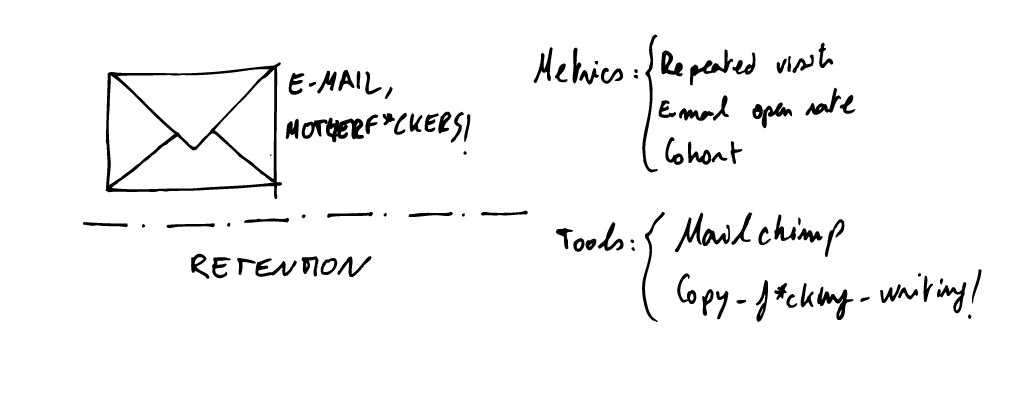 E-MAIL,
MOTHERF*CKERS!
RETENTION
Metrics:
Repeated visits
E-mail open rate
Cohort
Tools:
Mailchimp
Copy-f*cking-writing!